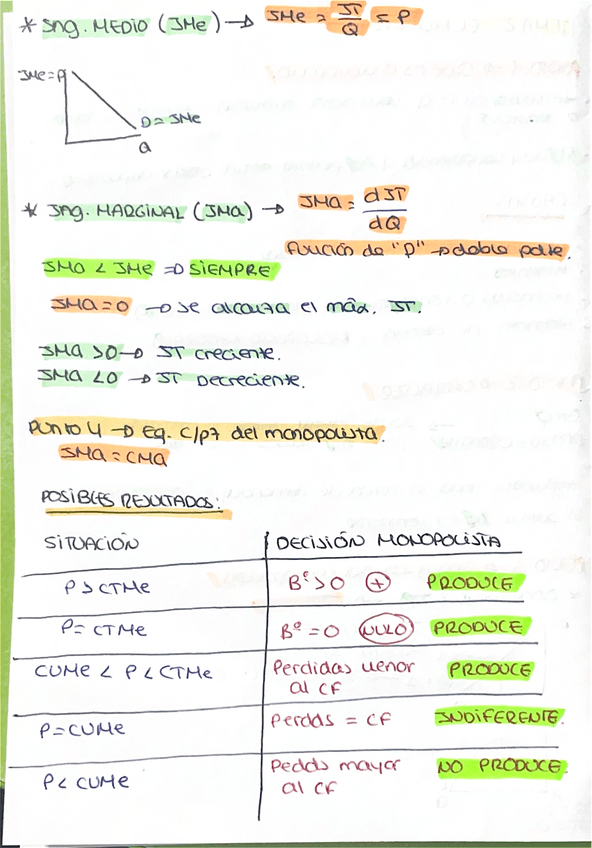 * Ing. MEDIO (IMe) → IMe = IT/Q = P
IMe = P
D = IMe
Q
* Ing. MARGINAL (IMa) → IMa = dIT/dQ
Función de "P" → doble pdte.
IMa < IMe ⇒ SIEMPRE
IMa = 0 → se alcanza el máx. IT.
IMa > 0 → IT creciente.
IMa < 0 → IT Decreciente.
PUNTO 4 → Eq. C/PZ del monopolista.
IMa = CMa
POSIBLES RESULTADOS:
SITUACIÓN | DECISIÓN MONOPOLISTA
P > CTMe | Bº > 0 (+) PRODUCE
P = CTMe | Bº = 0 (NULO) PRODUCE
CVMe < P < CTMe | Perdidas menor al CF PRODUCE
P = CVMe | Perdds = CF INDIFERENTE.
P < CVMe | Pedds mayor al CF NO PRODUCE